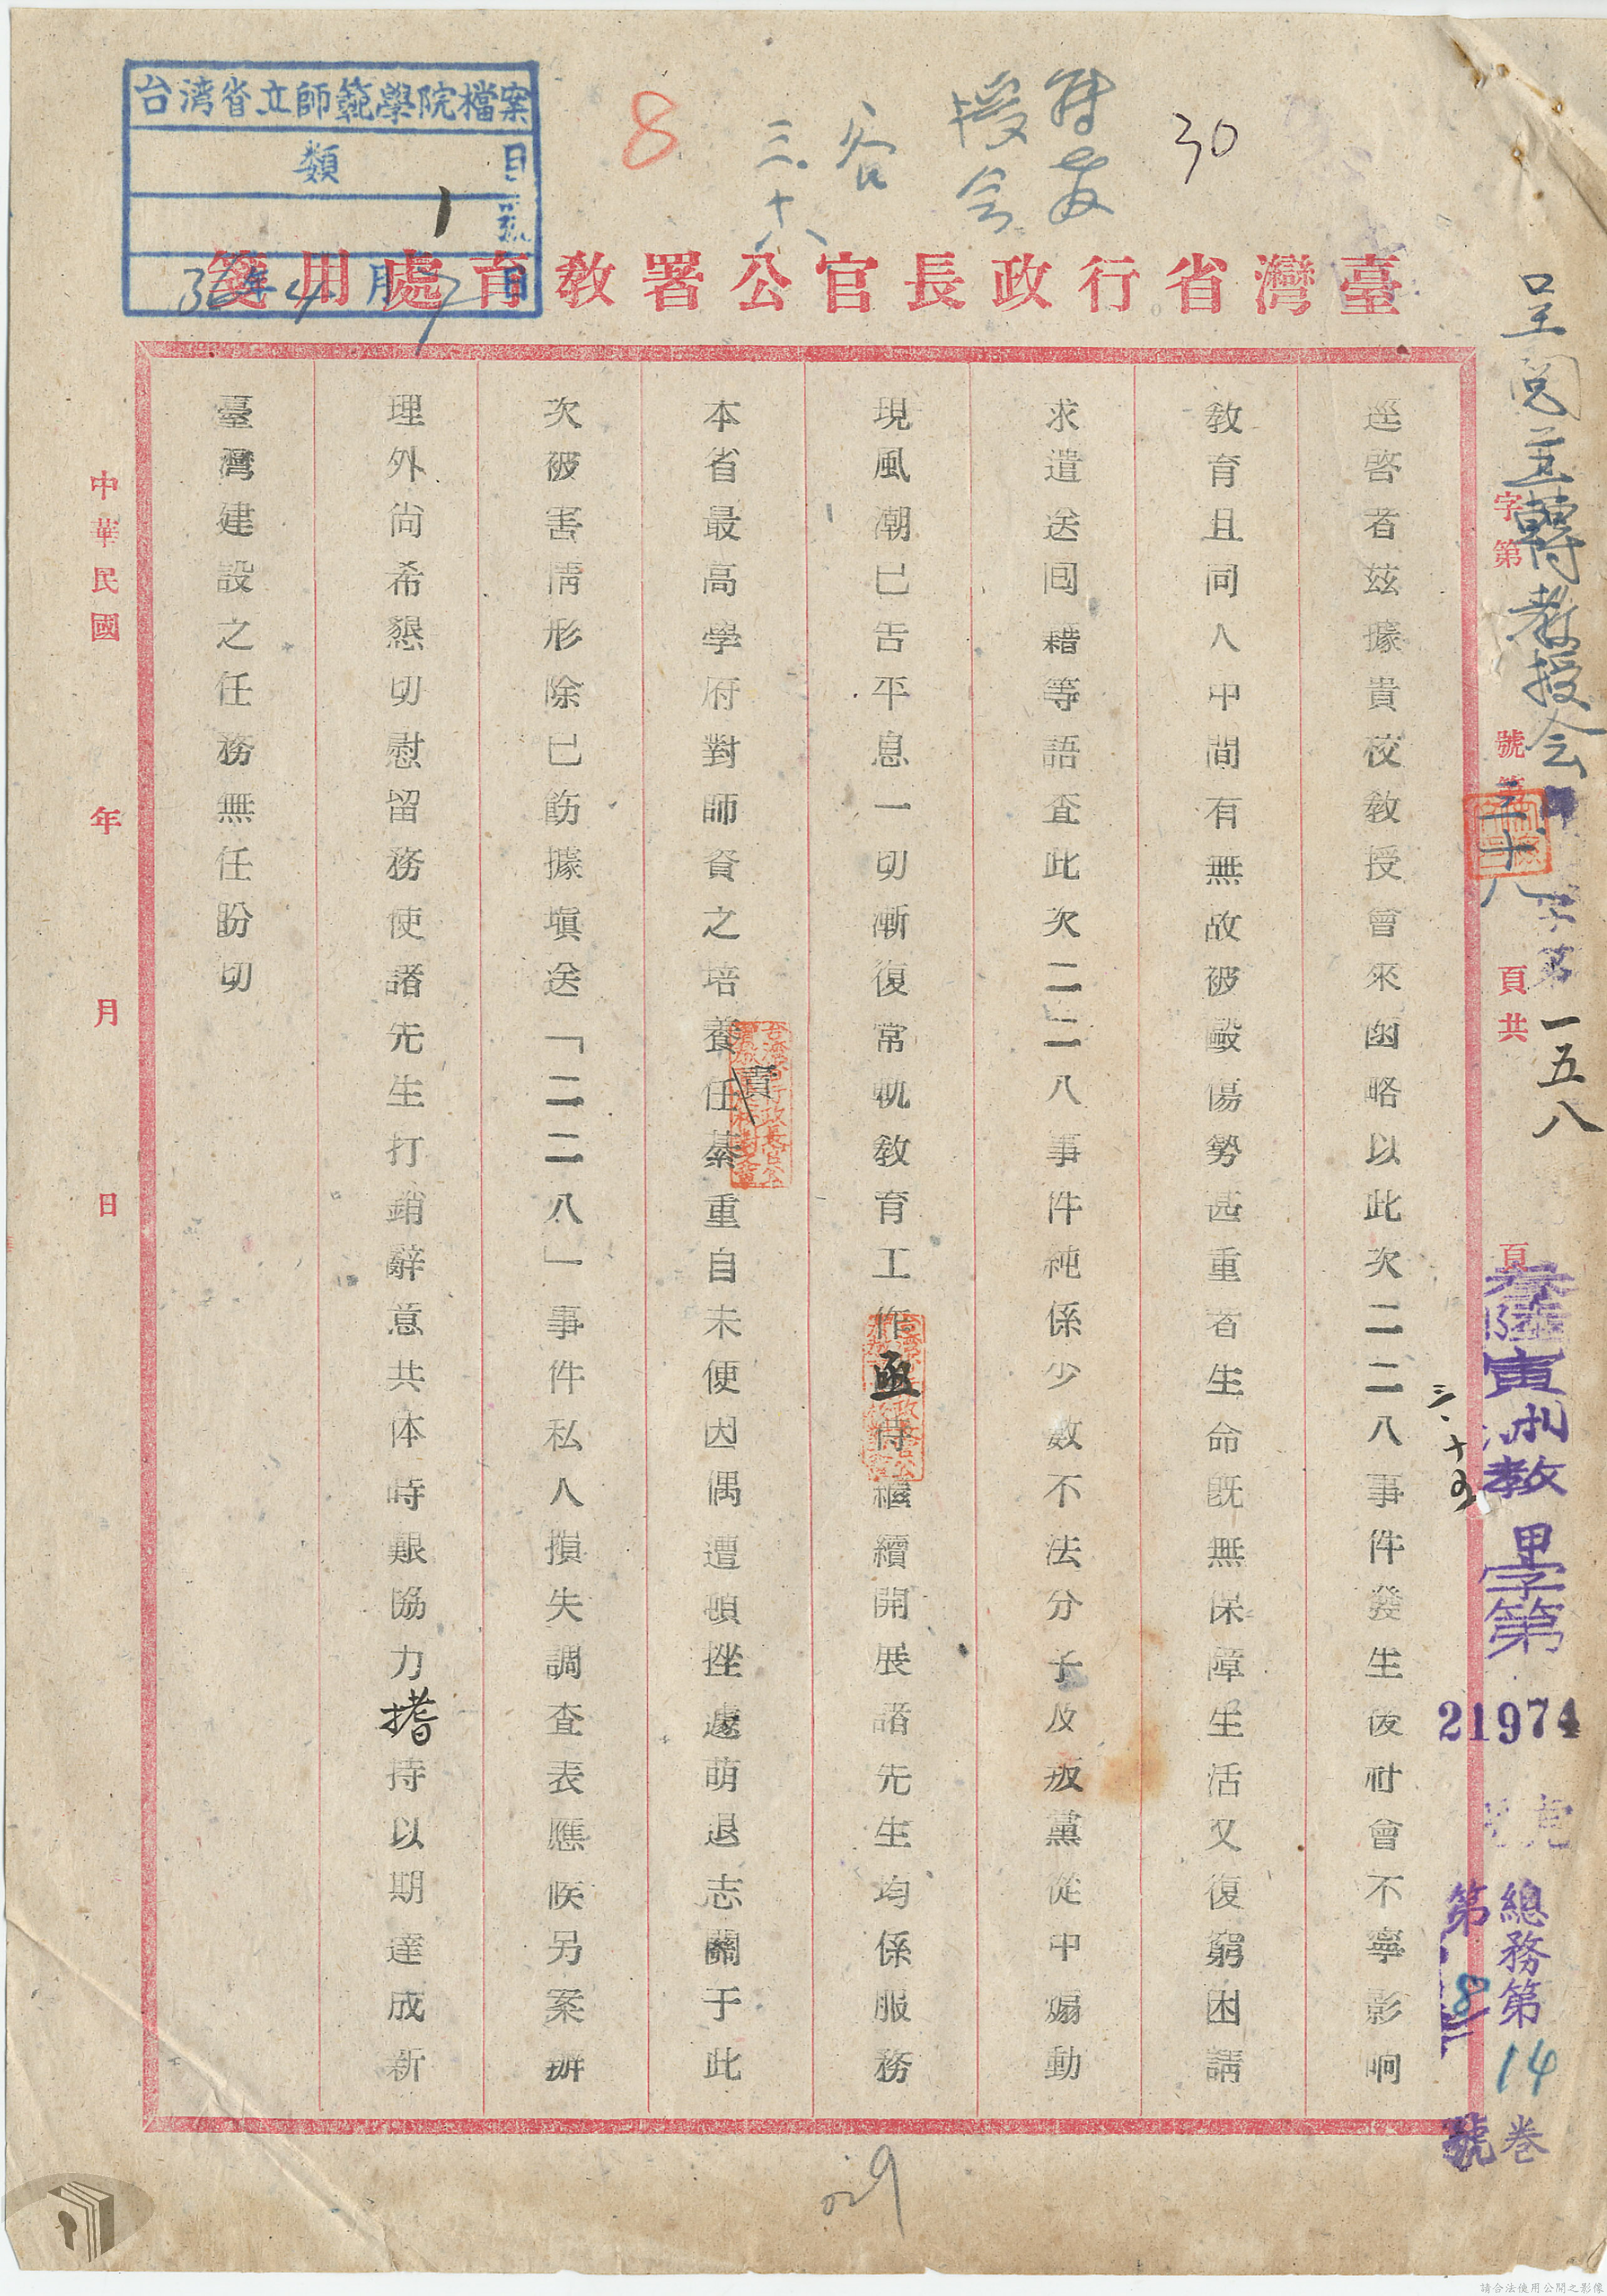 台湾省立師範學院檔案
類 目
1 號
36年4月7日
8
30
轉教
授会
容
三.十八
臺灣省行政長官公署教育處用箋
呈閱並轉教授会
三.十八
字第 號 第 頁共 頁
字第一五八
叁陸寅 教甲字第
21974
號
總務第14卷
第8號
三.十五
逕啓者茲據貴校教授會來函略以此次二二八事件發生後社會不寧影响
教育且同人中間有無故被毆傷勢甚重者生命既無保障生活又復窮困請
求遣送囘籍等語查此次二二八事件純係少數不法分子及叛黨從中煽動
現風潮已告平息一切漸復常軌教育工作亟待繼續開展諸先生均係服務
本省最高學府對師資之培養責任綦重自未便因偶遭頓挫遽萌退志關于此
次被害情形除已飭據塡送「二二八」事件私人損失調查表應候另案辦
理外尙希懇切慰留務使諸先生打銷辭意共体時艱協力撐持以期達成新
臺灣建設之任務無任盼切
中華民國 年 月 日
029
請合法使用公開之影像